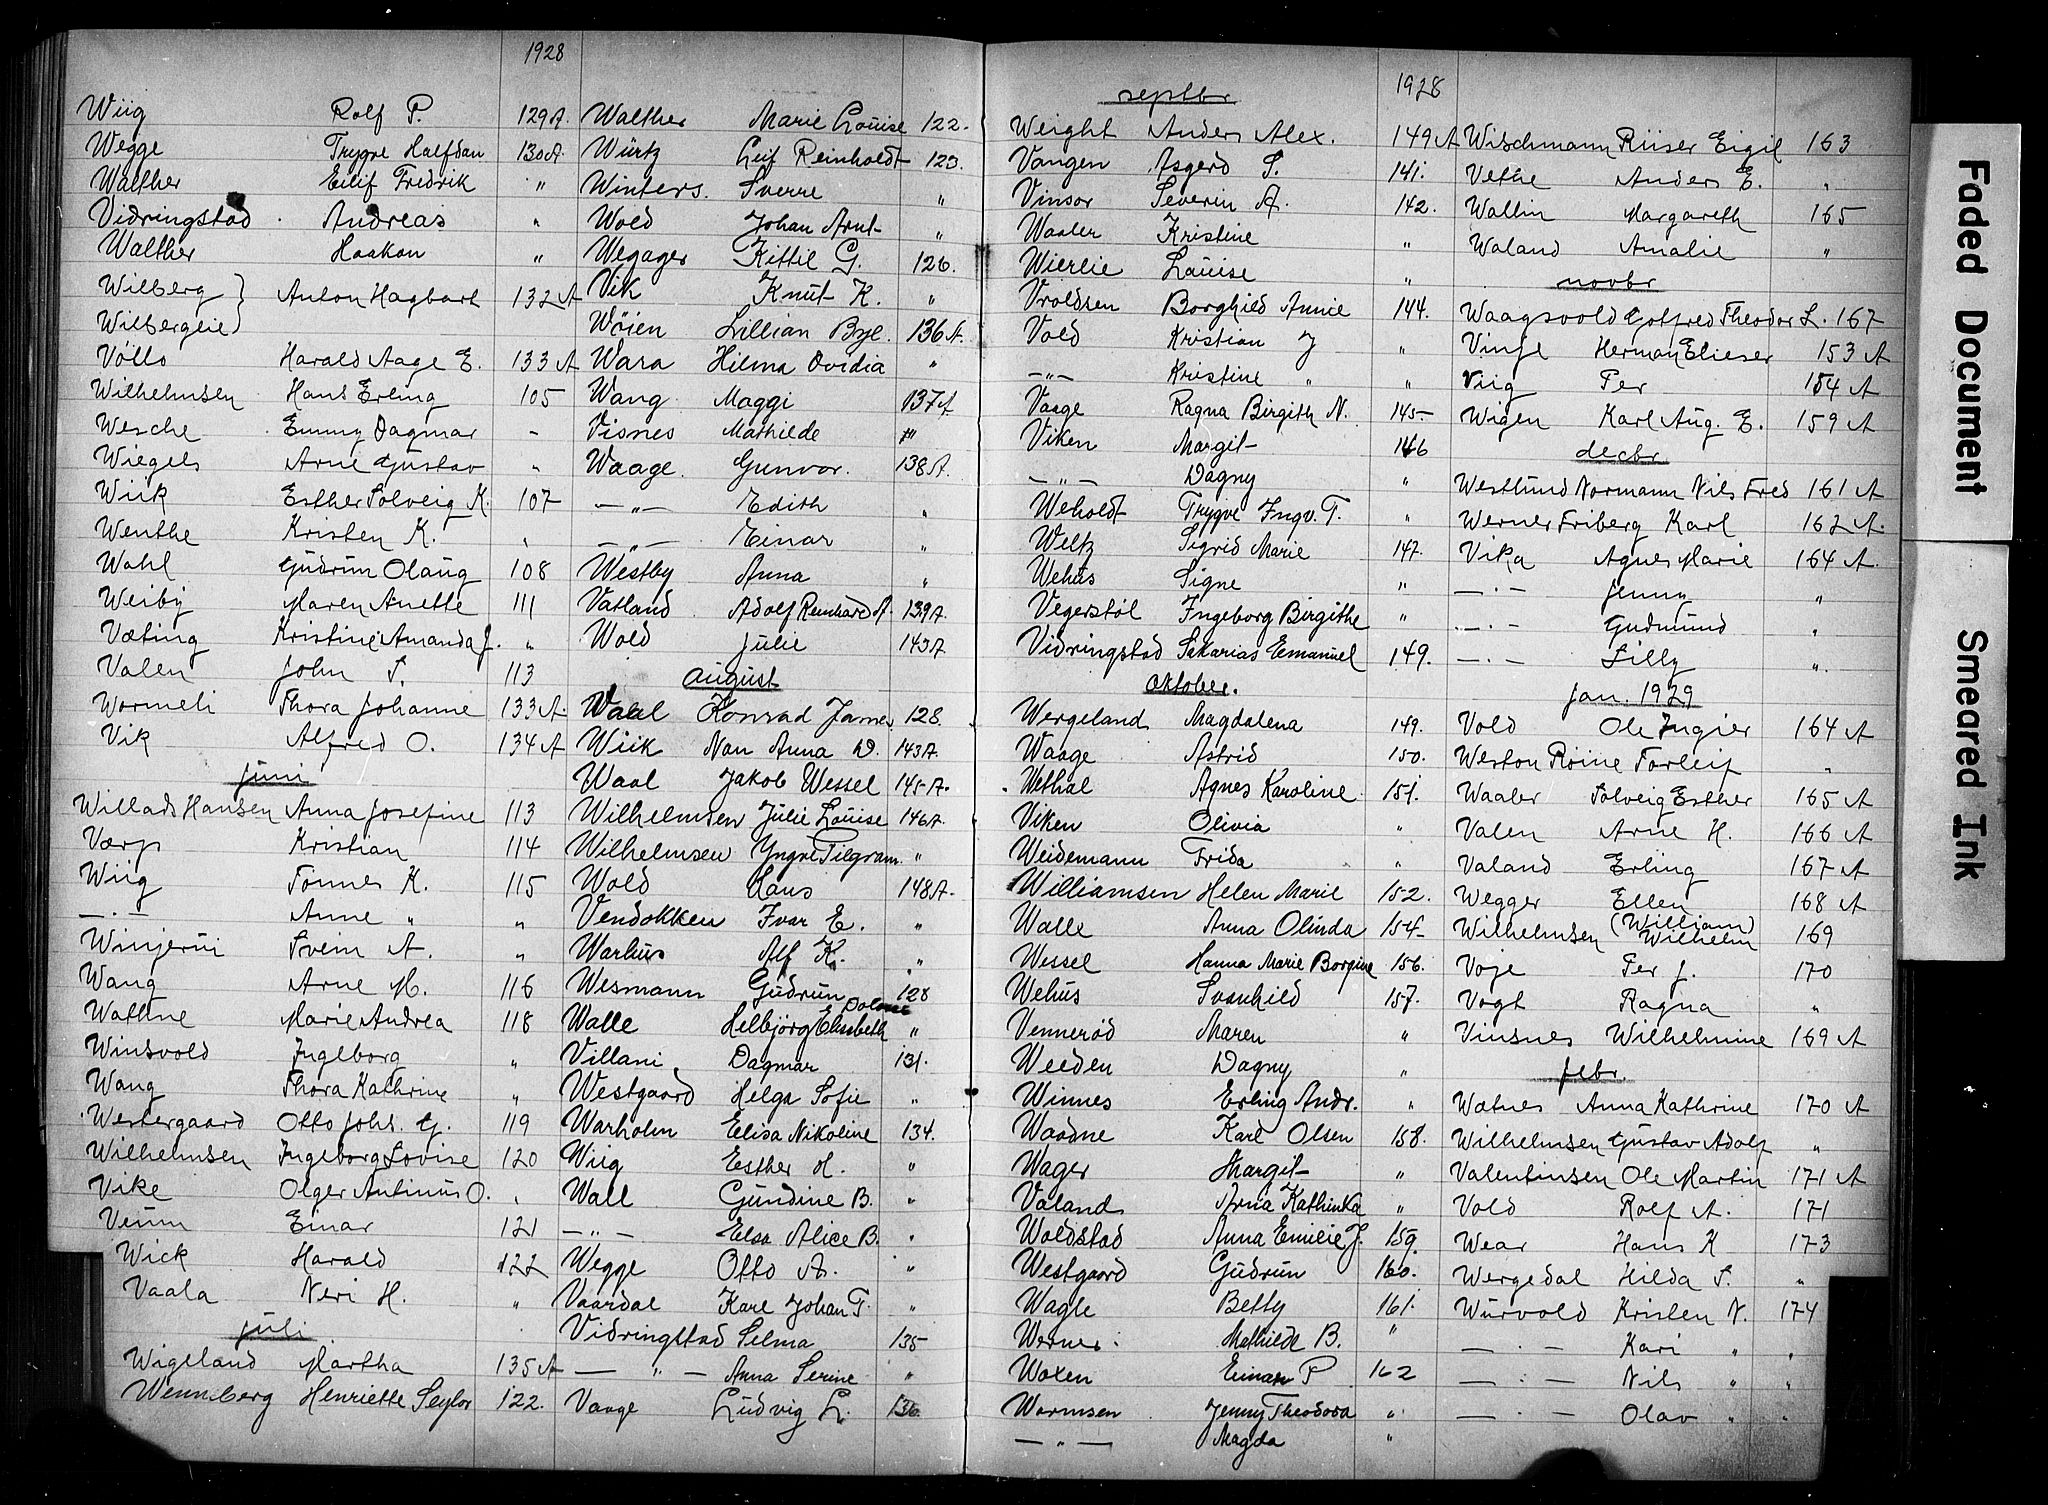 1928
Wiig Rolf P. 129A.
Wegge Trygve Halfdan 130A.
Walther Eilif Fredrik "
Vidringstad Andreas "
Walther Haakon "
Wilberg } Anton Hagbart 132A
Wilberglie }
Völlo Harald Aage E. 133A
Wilhelmsen Hans Erling 105
Wesche Emmy Dagmar -
Wiegels Arne Gustav "
Wiik Esther Solveig K. 107
Wenthe Kristen K. "
Wahl Gudrun Olaug 108
Weiby Maren Anette 111
Væting Kristine Amanda J. "
Valen John S. 113
Wormeli Thora Johanne 133A.
Vik Alfred O. 134A
juni
Willads Hansen Anna Josefine 113
Værp Kristian 114
Wiig Tonnes K. 115
— . — Anne " "
Winjerui Svein A. "
Wang Arne M. 116
Wathne Marie Andrea 118
Winsvold Ingeborg "
Wang Thora Kathrine "
Westergaard Otto Johs. G. 119
Wilhelmsen Ingeborg Lovise 120
Vike Olger Antinius O. "
Veum Einar 121
Wick Harald 122
Vaala Neri H. "
juli
Wigeland Martha 135A
Wennberg Henriette Seylor 122.
Walther Marie Louise 122.
Würtz Leif Reinholdt 123.
Winters. Sverre "
Wold Johan Arnt "
Wegager Kittil G. 126.
Vik Knut K. "
Wöien Lillian Bye. 136A.
Wara Hilma Ovidia "
Wang Maggi 137A
Visnes Mathilde "
Waage. Gunvor. 138A.
— " — Edith "
— " — Einar "
Westby Anna "
Vatland Adolf Reinhard A. 139A.
Wold Julie 143A
august
Waal Konrad James 128.
Wiik Nan Anna D. 143A.
Waal Jakob Wessel 145A.
Wilhelmsen Julie Louise 146A.
Wilhelmsen Yngve Pilgram "
Wold Hans 148A.
Vendokken Ivar E. "
Warhus Alf K. "
Wesmann Gudrun 128
Walle Helbjörg Elisabeth "
Villani Dagmar 131.
Westgaard Helga Sofie "
Warholm Elisa Nikoline 134.
Wiig Esther H. "
Wall Gundine B. "
— " — Elsa Alice B. "
Wegge Otto A. "
Vaardal Karl Johan T. "
Vidringstad Selma 135
— " — Anna Serine "
Vaage Ludvig L. 136.
septbr
1928
Weight Anders Alex. 149A
Vangen Asgerd S. 141.
Vinsor Severin A. 142.
Waaler Kristine "
Wierlie Louise "
Vroldsen Borghild Annie 144.
Vold Kristian J "
— " — Kristine " "
Vaage Ragna Birgith N. 145
Viken Margit 146
— " — Dagny "
Weholdt Trygve Ingv. T. "
Weltz Sigrid Marie 147.
Wehus Signe "
Vegerstöl Ingeborg Birgithe "
Vidringstad Sakarias Emanuel 149.
Oktober.
Wergeland Magdalena 149.
Waage Astrid 150.
Wethal Agnes Karoline 151.
Viken Olivia "
Weidemann Frida "
Williamsen Helen Marie 152.
Walle Anna Olinda 154
Wessel Hanna Marie Borgine 156.
Wehus Svanhild 157.
Vennerød Maren "
Weeden Dagny "
Winnes Erling Andr. "
Waadne Karl Olsen 158.
Wager Margit "
Valand Arna Kathinka "
Woldstad Anna Emilie J. 159.
Westgaard Gudrun 160.
Wagle Betty 161.
Werner. Mathilde B. "
Woxen Einar P. 162
Wormsen Jenny Theodora "
— " — Magda "
Wischmann Riiser Eigil 163
Vethe Anders E. "
Wallin Margareth 165
Waland Amalie "
novbr
Waagsvold Gotfred Theodor L. 167
Vinje Herman Elieser 153A
Viig Per 154A
Wigen Karl Aug. E. 159A
decbr
Westlund Normann Nils Fred 161A
Werner Friberg Karl 162A.
Vika Agnes Marie 164A
— . — Jenny "
— . — Gudmund "
— . — Lilly "
jan. 1929
Vold Ole Ingier 164A
Weston Röine Torleif "
Waaler Solveig Esther 165A
Valen Arne H. 166A
Valand Erling 167A
Wegger Ellen 168A
Wilhelmsen (William) Wilhelm 169
Voje Per J. 170
Vogt Ragna "
Vinsnes Wilhelmine 169A
febr.
Wætnes Anna Kathrine 170A
Wilhelmsen Gustav Adolf "
Valentinsen Ole Martin 171A
Vold Rolf A. 171
Wear Hans K 173
Wergedal Hilda S. "
Wurvold Kristen N. 174
— . — Kari " "
— . — Nils " "
— . — Olav " "
Faded Document
Smeared Ink